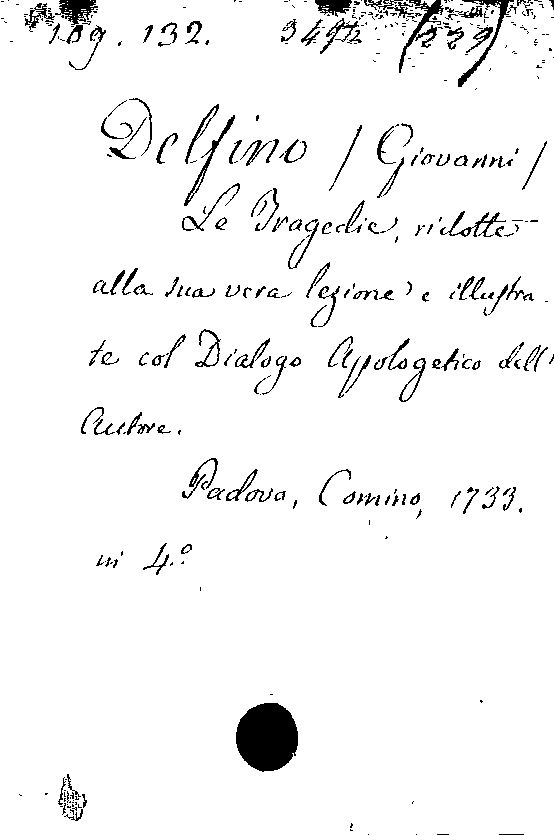 109. 132. 3492 (229)
Delfino / Giovanni /
Le Tragedie, ridotte
alla sua vera lezione e illustra-
te col Dialogo Apologetico dell'
Autore.
Padova, Comino, 1733.
in 4.º